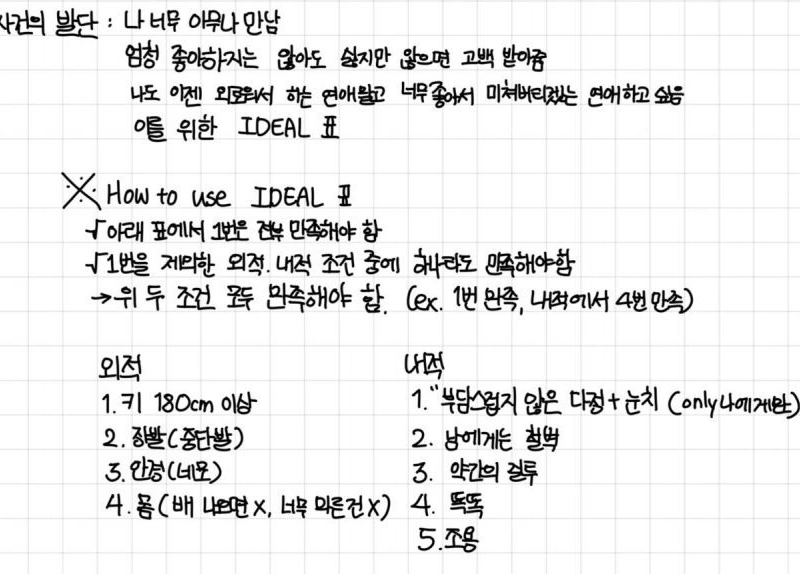 사건의 발단 : 나 너무 아무나 만남
엄청 좋아하지는 않아도 싫지만 않으면 고백 받아줌
나도 이젠 외로워서 하는 연애말고 너무좋아서 미쳐버리겠는 연애하고 싶음
이를 위한 IDEAL 표
※ How to use IDEAL 표
√ 아래 표에서 1번은 전부 만족해야 함
√ 1번을 제외한 외적. 내적 조건 중에 하나라도 만족해야함
→ 위 두 조건 모두 만족해야 함. (ex. 1번 만족, 내적에서 4번 만족)
외적
1. 키 180cm 이상
2. 장발(중단발)
3. 안경(네모)
4. 몸(배 나오면 X, 너무 마른건 X)
내적
1. "부담스럽지 않은 다정 + 눈치 (only 나에게만)
2. 남에게는 철벽
3. 약간의 질투
4. 똑똑
5. 조용